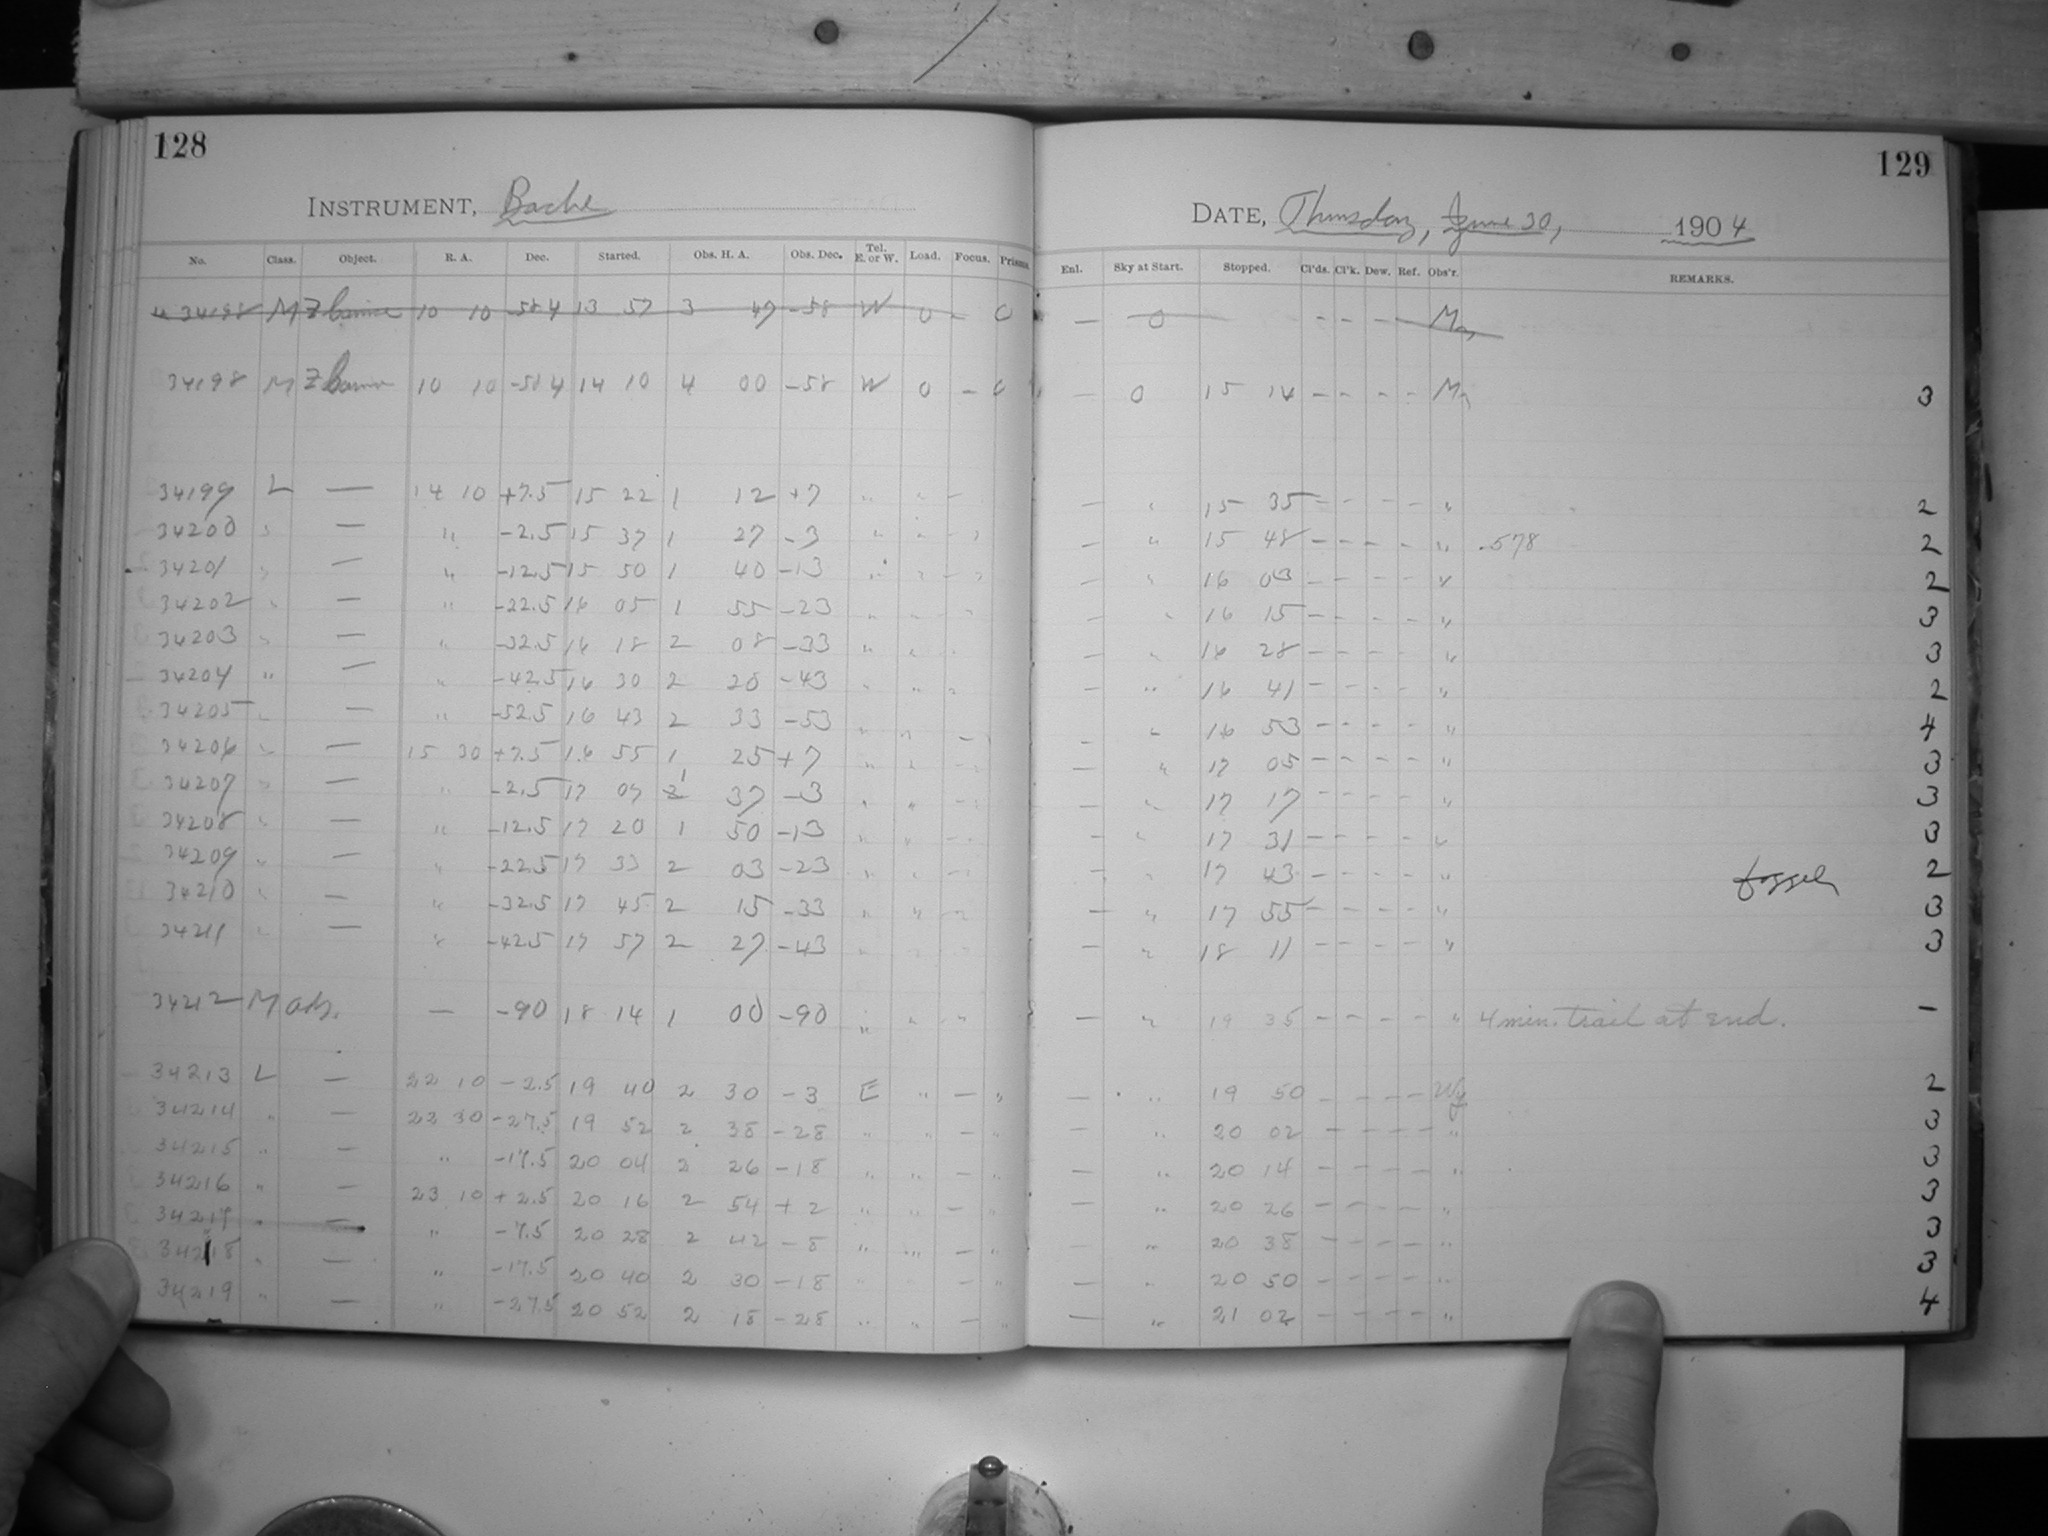 128
INSTRUMENT, Bache
No. Class. Object. R. A. Dec. Started. Obs. H. A. Obs. Dec. Tel. E. or W. Load. Focus. Prisms.
34198 M Z Carinae 10 10 -58 4 13 57 3 47 -58 W 0 - 0
34198 M Z Carinae 10 10 -58 4 14 10 4 00 -58 W 0 - 0
34199 L — 14 10 +7.5 15 22 1 12 +7 " " -
34200 " — " -2.5 15 37 1 27 -3 " " - "
34201 " — " -12.5 15 50 1 40 -13 " " - "
34202 " — " -22.5 16 05 1 55 -23 " " - "
34203 " — " -32.5 16 18 2 08 -33 " " -
34204 " — " -42.5 16 30 2 20 -43 " " -
34205 " — " -52.5 16 43 2 33 -53 " " - "
34206 " — 15 30 +7.5 16 55 1 25 +7 " " - "
34207 " — " -2.5 17 07 1 37 -3 " " - "
34208 " — " -12.5 17 20 1 50 -13 " " - "
34209 " — " -22.5 17 33 2 03 -23 " " - "
34210 " — " -32.5 17 45 2 15 -33 " " - "
34211 " — " -42.5 17 57 2 27 -43 " " -
34212 M ads. — -90 18 14 1 00 -90 " " - "
34213 L — 22 10 -2.5 19 40 2 30 -3 E " — "
34214 " — 22 30 -27.5 19 52 2 38 -28 " " — "
34215 " — " -17.5 20 04 2 26 -18 " " - "
34216 " — 23 10 +2.5 20 16 2 54 +2 " " — "
34217 " — " -7.5 20 28 2 42 -8 " " — "
34218 " — " -17.5 20 40 2 30 -18 " - "
34219 " — " -27.5 20 52 2 18 -28 " " — "
129
DATE, Thursday, June 30, 1904
Enl. Sky at Start. Stopped. Cl'ds. Cl'k. Dew. Ref. Obs'r. REMARKS.
— 0 - - - M
— 0 15 14 - - - - M 3
— " 15 35 - - - - " 2
— " 15 48 - - - - " .578 2
— " 16 03 - - - - " 2
— " 16 15 - - - - " 3
— " 16 28 - - - - " 3
— " 16 41 - - - - " 2
— " 16 53 - - - - " 4
— " 17 05 - - - - " 3
— " 17 17 - - - - " 3
— " 17 31 - - - - " 3
— " 17 43 - - - - " 2
— " 17 55 - - - - " 3
— " 18 11 - - - - " 3
— " 19 35 - - - - " 4 min. trail at end. -
— " 19 50 - - - - Wy 2
— " 20 02 - - - - " 3
— " 20 14 - - - - " 3
— " 20 26 - - - - " 3
— " 20 38 - - - - " 3
— " 20 50 - - - - " 3
— " 21 02 - - - - " 4